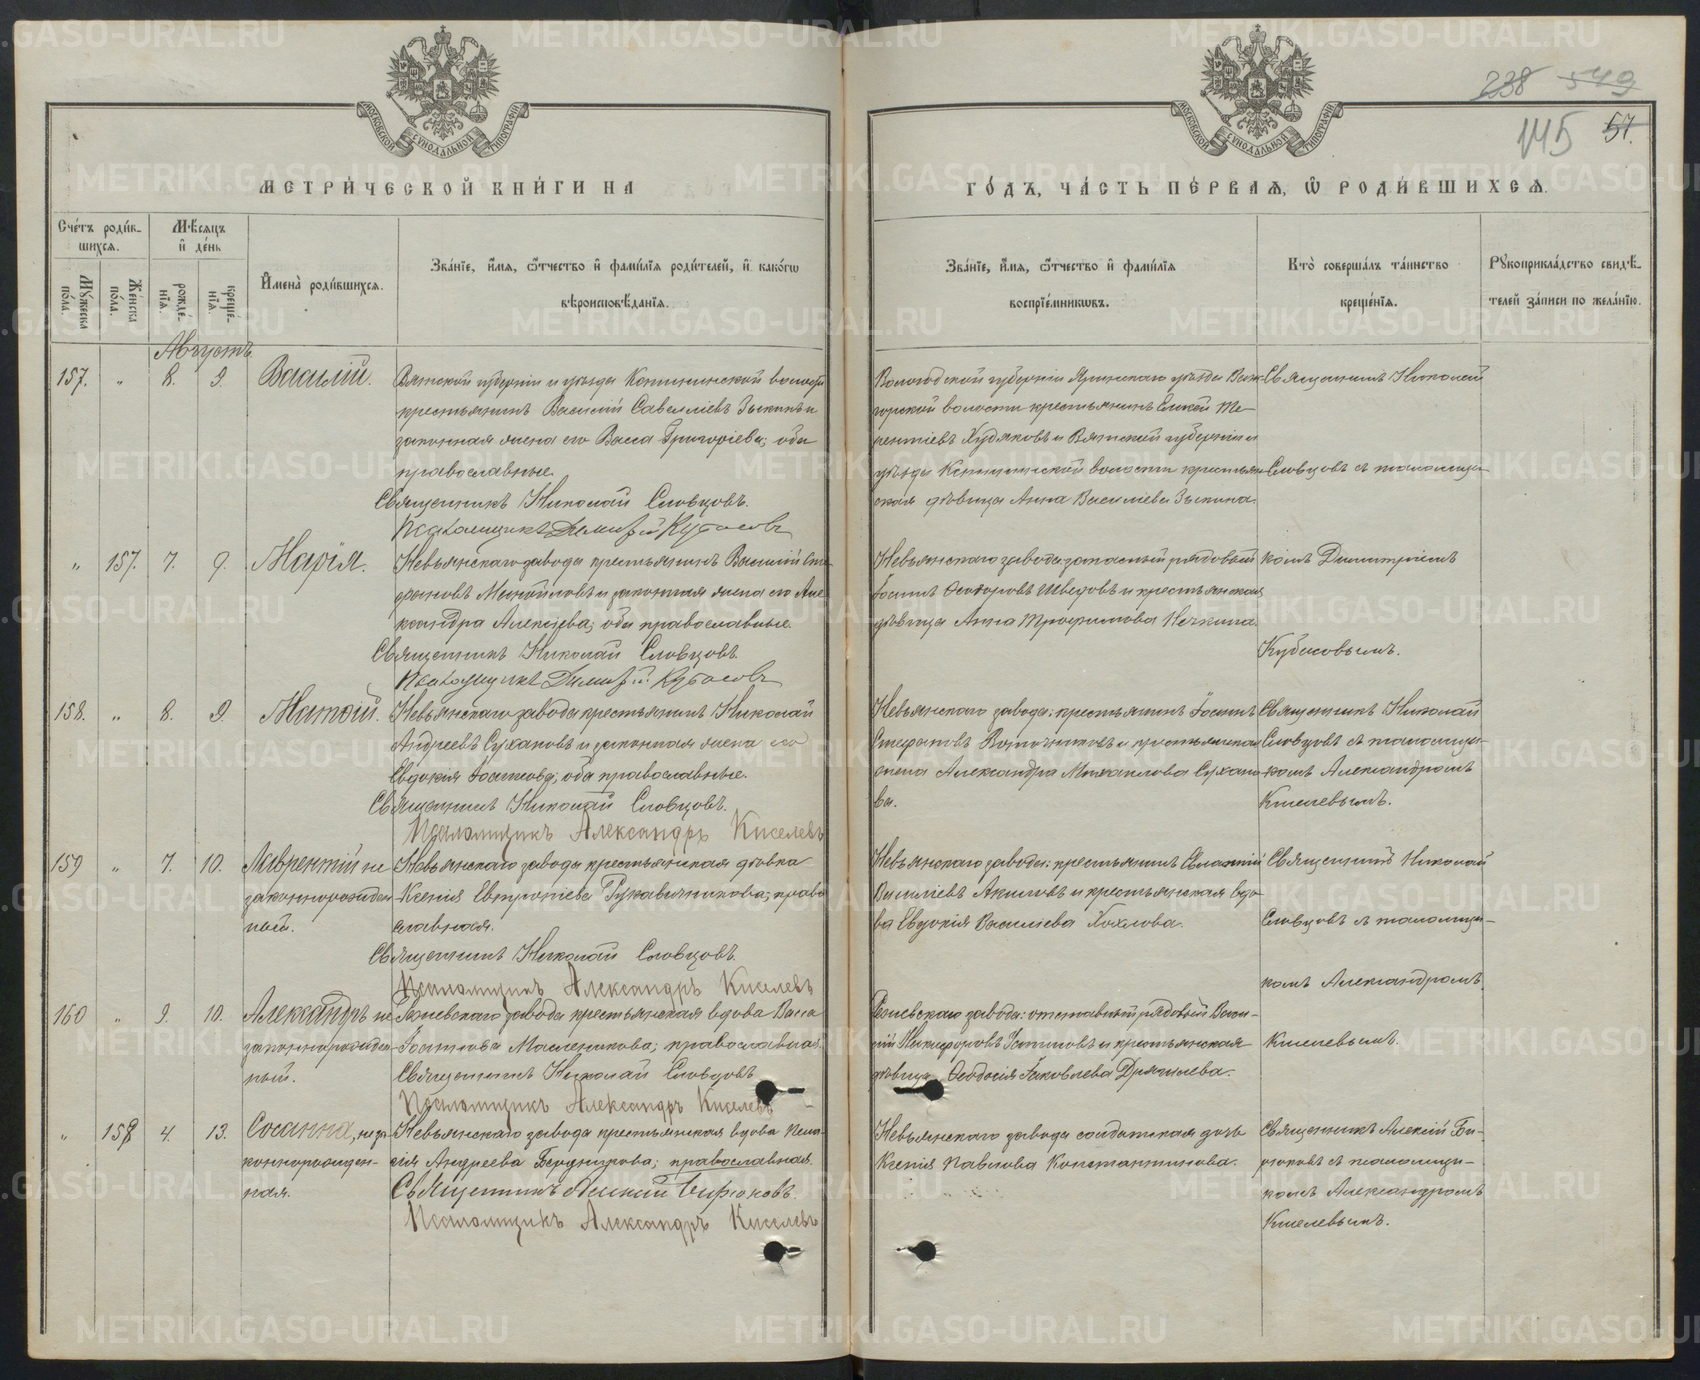 238 549
145 57.
МОСКОВСКОЙ СѴНОДАЛЬНОЙ ТИПОГРАФІИ
МОСКОВСКОЙ СѴНОДАЛЬНОЙ ТИПОГРАФІИ
МЕТРИ́ЧЕСКОЙ КНИ́ГИ НА
ГО́ДЪ, ЧА́СТЬ ПЕ́РВАѦ, Ѡ҆ РОДИ́ВШИХСѦ.
Сче́тъ роди́в-
шихсѧ.
Мꙋ́жеска по́ла.
Же́нска по́ла.
Мѣ́сѧцъ
и҆ де́нь
рожде́-
нїѧ.
креще́-
нїѧ.
И҆мена̀ роди́вшихсѧ.
Зва́нїе, и҆́мѧ, ѻ҆́тчество и҆ фами́лїѧ роди́телей, и҆ како́гѡ
вѣроисповѣ́данїѧ.
Зва́нїе, и҆́мѧ, ѻ҆́тчество и҆ фами́лїѧ
воспрїе́мникѡвъ.
Кто̀ соверша́лъ та́инство
креще́нїѧ.
Рꙋкоприкла́дство свидѣ́-
телей за́писи по жела́нїю.
Августъ.
157. " 8. 9. Василій.
Вятской губерніи и уѣзда Кстининской волости
крестьянинъ Василій Савелліевъ Зыкинъ и
законная жена его Васса Григоріева; оба
православные.
Священникъ Николай Словцовъ.
Псаломщикъ Димитрій Кубасовъ
Вологодской губерніи Яренскаго уѣзда
горской волости крестьянинъ Елисей Те-
рентіевъ Худяковъ и Вятской губерніи и
уѣзда Кстининской волости крестьян-
ская дѣвица Анна Василіева Зыкина.
Священникъ Николай
Словцовъ съ псаломщи-
" 157. 7. 9. Марія.
Невьянскаго завода крестьянинъ Василій Сте-
фановъ Михайловъ и законная жена его Але-
ксандра Алексіева; оба православные.
Священникъ Николай Словцовъ.
Псаломщикъ Димитрій Кубасовъ
Невьянскаго завода: запасный рядовый
Іосифъ Ѳеодоровъ Шведовъ и крестьянская
дѣвица Анна Трофимова Нечкина
комъ Димитріемъ
Кубасовымъ.
158. " 8. 9. Матѳій.
Невьянскаго завода крестьянинъ Николай
Андреевъ Сухановъ и законная жена его
Евдокія Іосифова; оба православные.
Священникъ Николай Словцовъ.
Псаломщикъ Александръ Киселевъ
Невьянскаго завода: крестьянинъ Іосифъ
Стефановъ и крестьянская
жена Александра Михаилова Сухано-
ва.
Священникъ Николай
Словцовъ съ псаломщи-
комъ Александромъ
Киселевымъ.
159 " 7. 10. Лаврентій не-
законнорожден-
ный.
Невьянскаго завода крестьянская дѣвка
Ксенія Евтропіева Рукавишникова; право-
славная.
Священникъ Николай Словцовъ.
Псаломщикъ Александръ Киселевъ
Невьянскаго завода: крестьянинъ Евлампій
Василіевъ Акиловъ и крестьянская вдо-
ва Евдокія Василіева Хохлова.
Священникъ Николай
Словцовъ съ псаломщи-
комъ Александромъ
160 " 9. 10. Александръ не-
законнорожден-
ный.
завода крестьянская вдова Васса
Іосифова Масленикова; православная.
Священникъ Николай Словцовъ
Псаломщикъ Александръ Киселевъ
завода: отставный рядовый Васи-
лій Никифоровъ Устиновъ и крестьянская
дѣвица Ѳеодосія Іаковлева Дрягилева.
Киселевымъ.
" 158 4. 13. Сосанна, неза-
коннорожден-
ная.
Невьянскаго завода крестьянская вдова Пела-
гія Андреева Бердникова; православная.
Священникъ Алексій Бирюковъ.
Псаломщикъ Александръ Киселевъ
Невьянскаго завода солдатская дочь
Ксенія Павлова Константинова.
Священникъ Алексій Би-
рюковъ съ псаломщи-
комъ Александромъ
Киселевымъ.
METRIKI.GASO-URAL.RU